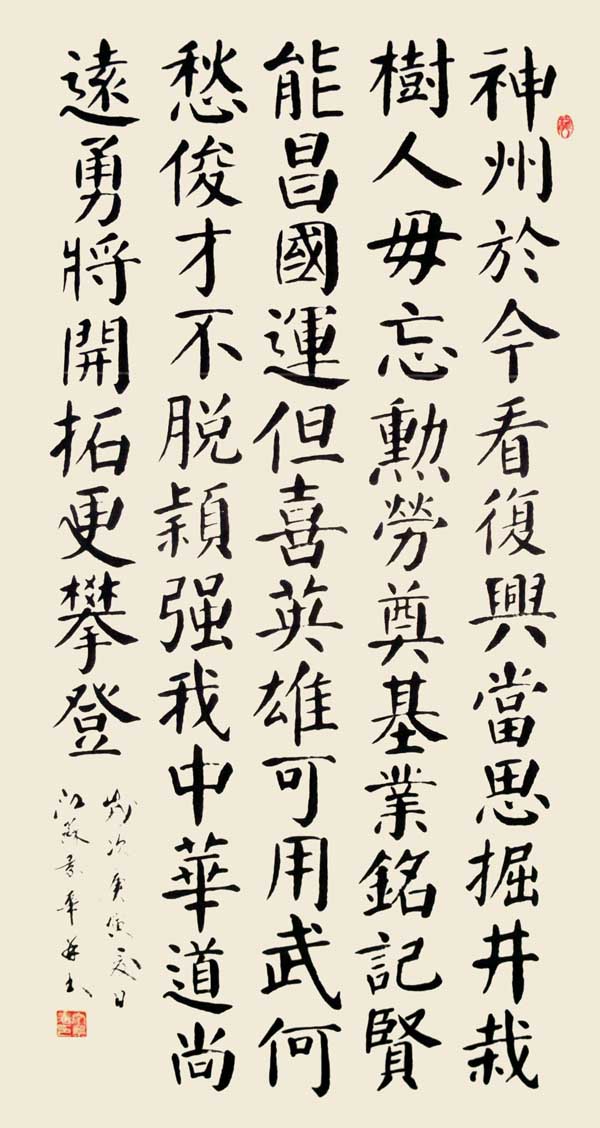 神州於今看復興當思掘井栽
樹人毋忘勲勞奠基業銘記賢
能昌國運但喜英雄可用武何
愁俊才不脱穎强我中華道尚
遠勇將開拓更攀登
歲次庚寅夏日
江蘇